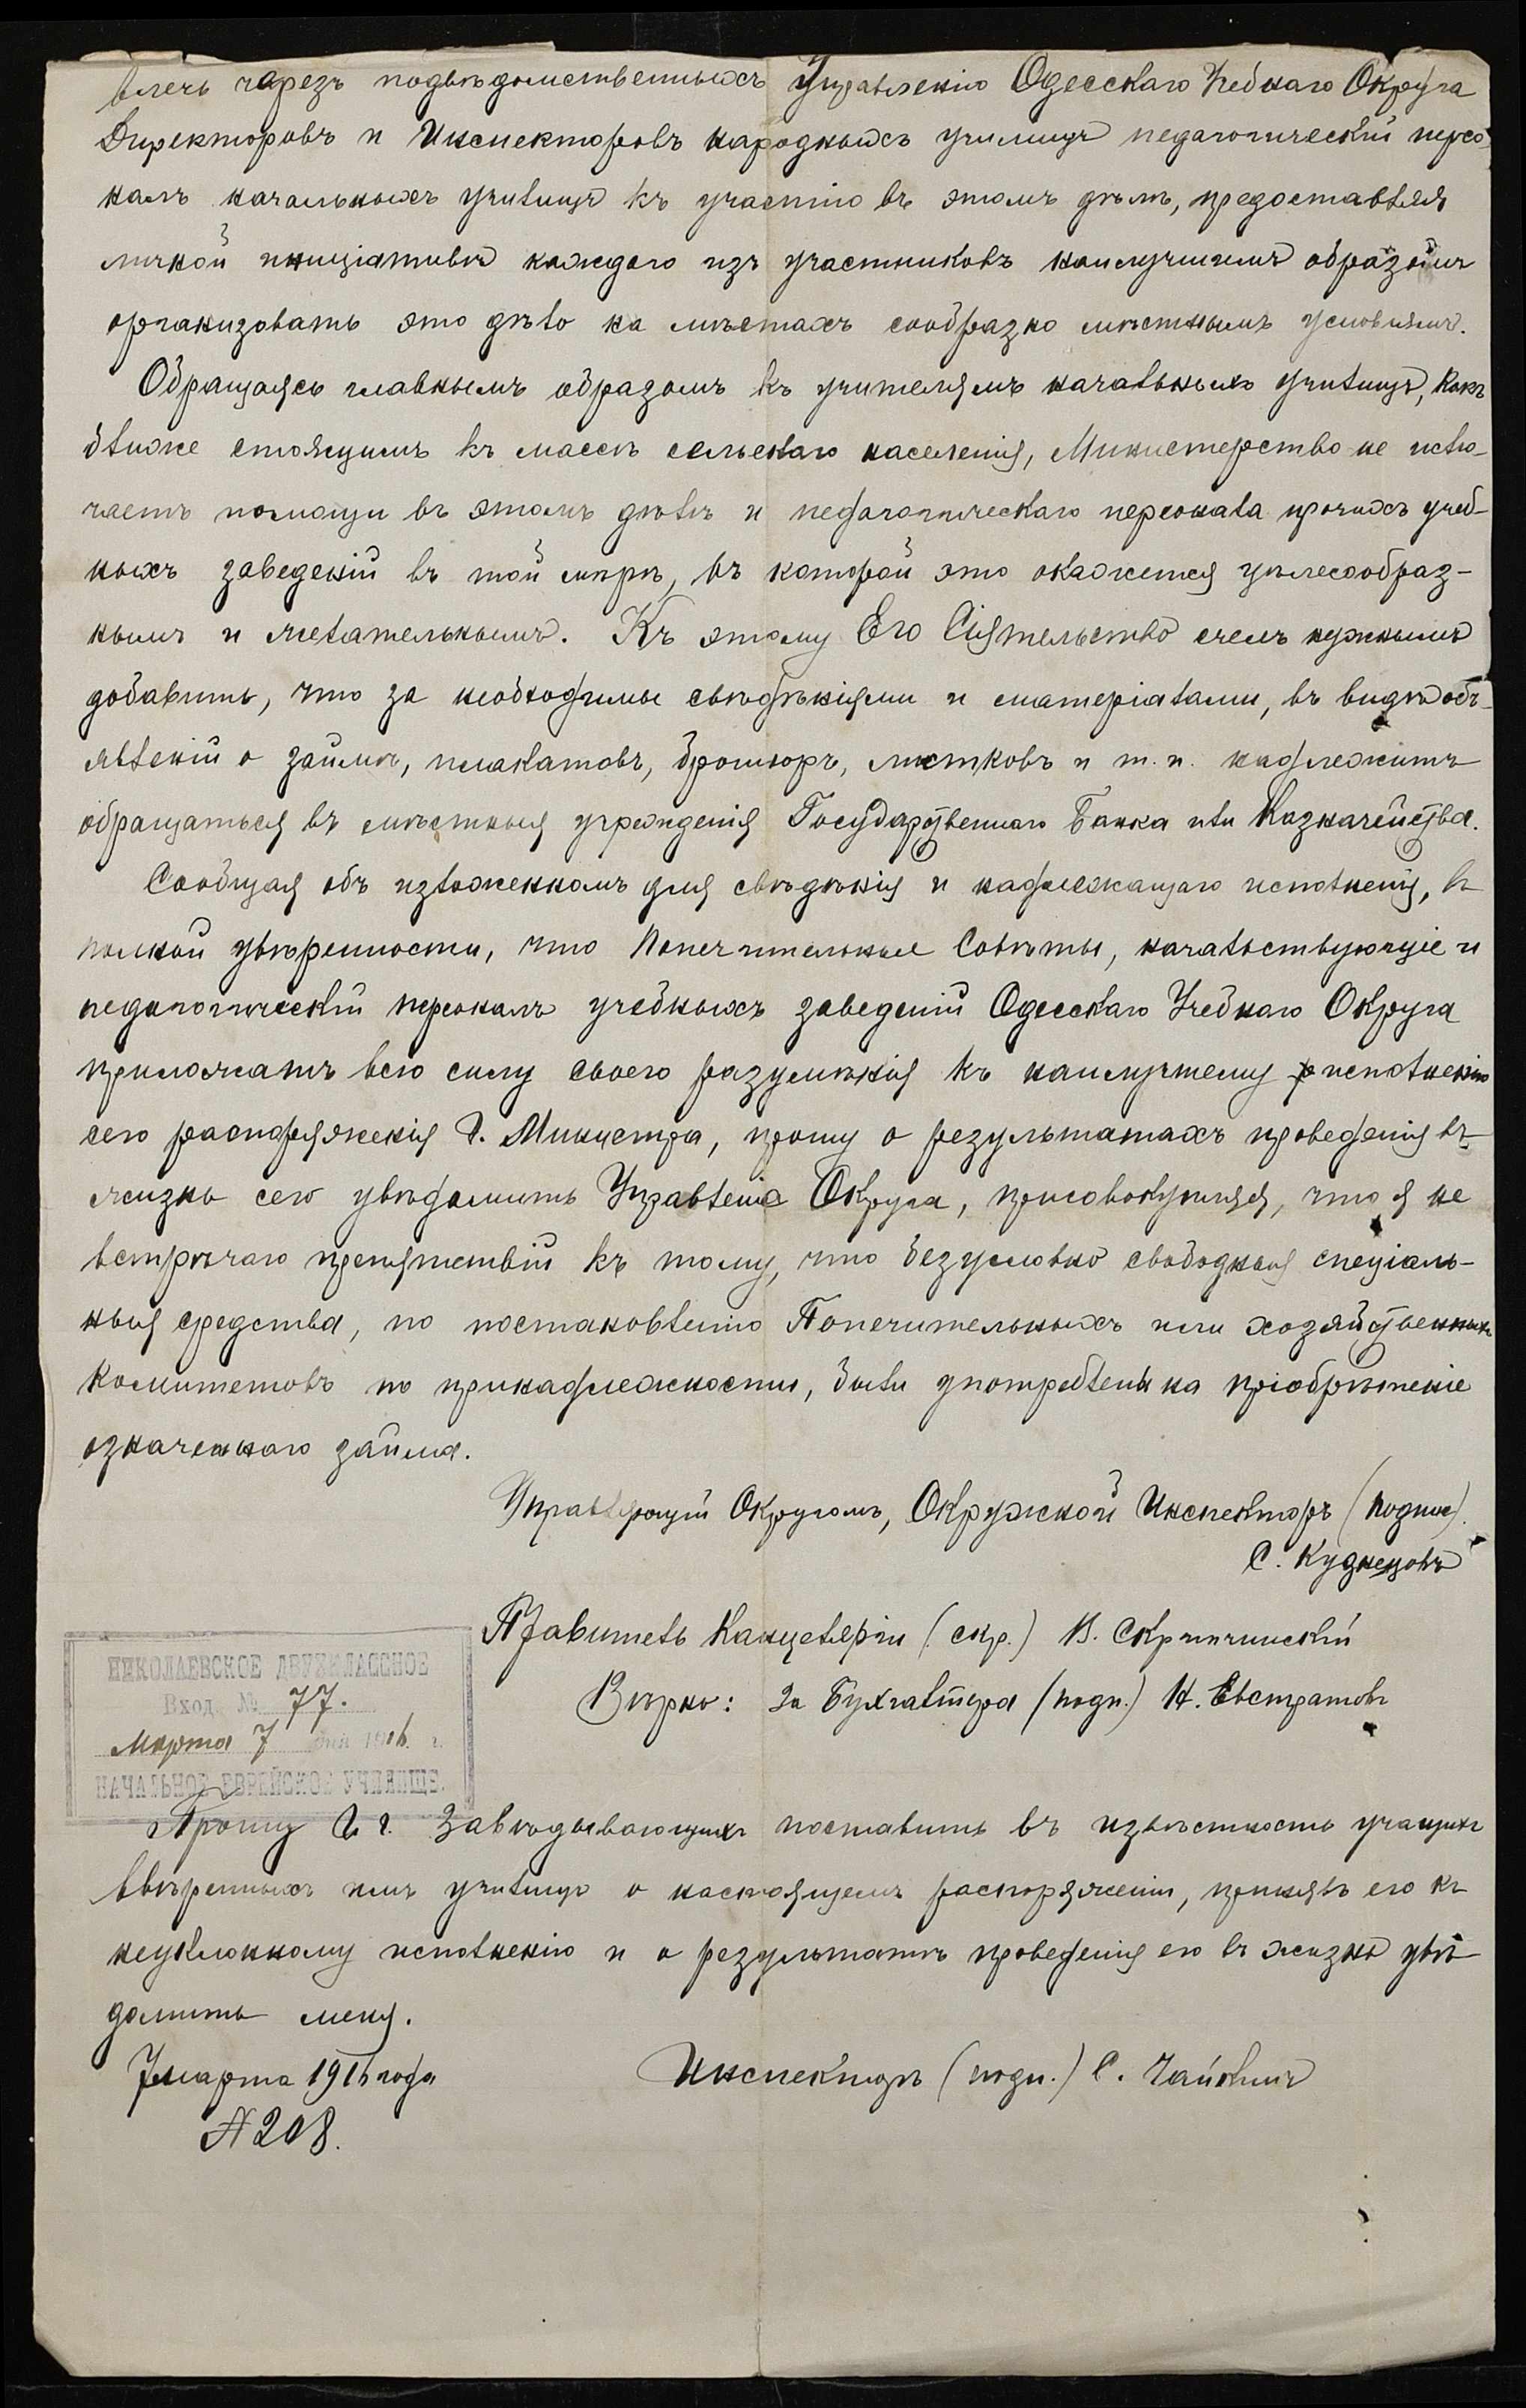 влечь черезъ подвѣдомственныхъ Управленію Одесскаго Учебнаго Округа
Директоровъ и Инспекторовъ народныхъ училищъ педагогическій персо-
налъ начальныхъ училищъ къ участію въ этомъ дѣлѣ, предоставляя
личной иниціативѣ каждаго изъ участниковъ наилучшимъ образомъ
организовать это дѣло на мѣстахъ сообразно мѣстнымъ условіямъ.
Обращаясь главнымъ образомъ къ учителямъ начальныхъ училищъ, какъ
ближе стоящимъ къ массѣ сельскаго населенія, Министерство не исклю-
чаетъ помощи въ этомъ дѣлѣ и педагогическаго персонала прочихъ учеб-
ныхъ заведеній въ той мѣрѣ, въ которой это окажется цѣлесообраз-
нымъ и желательнымъ. Къ этому Его Сіятельство счелъ нужнымъ
добавить, что за необходимы свѣдѣніями и матеріалами, въ видѣ объ-
явленій о займѣ, плакатовъ, брошюръ, листковъ и т. п. надлежитъ
обращаться въ мѣстныя учрежденія Государственнаго Банка или Казначейства.
Сообщая объ изложенномъ для свѣдѣнія и надлежащаго исполненія, въ
полной увѣренности, что Попечительные Совѣты, начальствующіе и
педагогическій персоналъ учебныхъ заведеній Одесскаго Учебнаго Округа
приложатъ всю силу своего разумѣнія къ наилучшему исполненію
сего распоряженія Г. Министра, прошу о результатахъ проведенія въ
жизнь сего увѣдомить Управленіе Округа, присовокупляя, что я не
встрѣчаю препятствій къ тому, что безусловно свободныя спеціаль-
ныя средства, по постановленію Попечительныхъ или хозяйственныхъ
Комитетовъ по принадлежности, были употреблены на пріобрѣтеніе
означеннаго займа.
Управляющій Округомъ, Окружной Инспекторъ (подпис).
С. Кузнецовъ
Правитель Канцеляріи (скр.) В. Скрипчинскій
Вѣрно: За Бухгалтера (подп.) Н. Евстратовъ
НИКОЛАЕВСКОЕ ДВУХКЛАССНОЕ
Вход. № 77.
Марта 7 дня 1916 г.
НАЧАЛЬНОЕ ЕВРЕЙСКОЕ УЧИЛИЩЕ.
Прошу Г. г. Завѣдывающихъ поставить въ извѣстность учащихъ
ввѣренныхъ имъ училищъ о настоящемъ распоряженіи, принявъ его къ
неуклонному исполненію и о результатѣ проведенія его въ жизнь увѣ-
домить меня.
7 марта 1916 года
Инспекторъ (подп.) С.
№ 208.